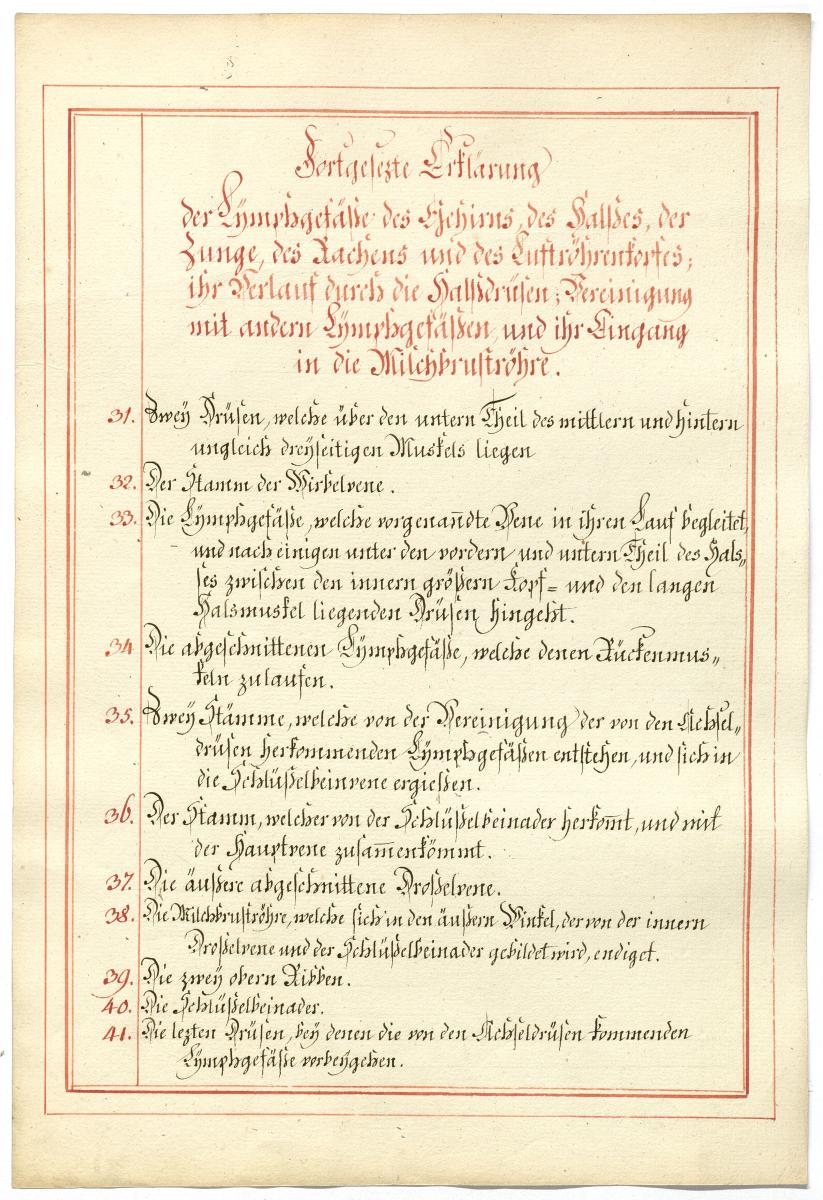 Fortgesezte Erklärung
der Lÿmphgefäße des Gehirns, des Halßes, der
Zunge, des Rachens und des Luftröhrenkopfes;
ihr Verlauf durch die Halßdrüsen; Vereinigung
mit andern Lÿmphgefäßen und ihr Eingang
in die Milchbruströhre.
31. Zwey Drüsen, welche über den untern Theil des mittlern und hintern
ungleich dreyseitigen Muskels liegen
32. Der Stamm der Wirbelvene.
33. Die Lÿmphgefäße, welche vorgenan̄dte Vene in ihren Lauf begleitet,
und nach einigen unter den vordern und untern Theil des Hals„
ses zwischen den innern größern Kopf= und den langen
Halsmuskel liegenden Drüsen hingeht.
34 Die abgeschnittenen Lÿmphgefäße, welche denen Rückenmus„
keln zulaufen.
35. Zwey Stämme, welche von der Vereinigung der von den Achsel„
drüsen herkommenden Lÿmphgefäßen entstehen, und sich in
die Schlüßelbeinvene ergiessen.
36. Der Stamm, welcher von der Schlüßelbeinader herkom̄t, und mit
der Hauptvene zusam̄enkömmt.
37. Die äußere abgeschnittene Droßelvene.
38. Die Milchbruströhre, welche sich in den äußern Winkel, der von der innern
Droßelvene und der Schlüßelbeinader gebildet wird, endiget.
39. Die zwey obern Ribben.
40. Die Schlüßelbeinader.
41. Die lezten Drüsen, bey denen die von den Achseldrüsen kommenden
Lÿmphgefäße vorbeygehen.